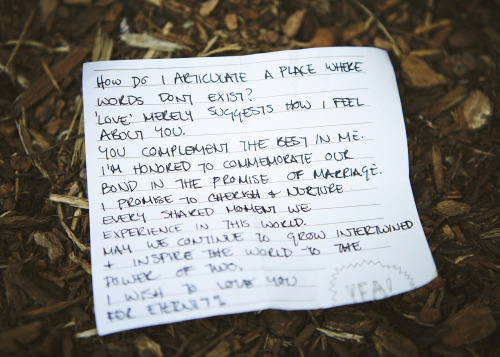 HOW DO I ARTICULATE A PLACE WHERE
WORDS DON'T EXIST?
'LOVE' MERELY SUGGESTS HOW I FEEL
ABOUT YOU.
YOU COMPLEMENT THE BEST IN ME.
I'M HONORED TO COMMEMORATE OUR
BOND IN THE PROMISE OF MARRIAGE.
I PROMISE TO CHERISH + NURTURE
EVERY SHARED MOMENT WE
EXPERIENCE IN THIS WORLD.
MAY WE CONTINUE TO GROW INTERTWINED
+ INSPIRE THE WORLD TO THE
POWER OF TWO.
I WISH TO LOVE YOU
FOR ETERNITY.
YEA!